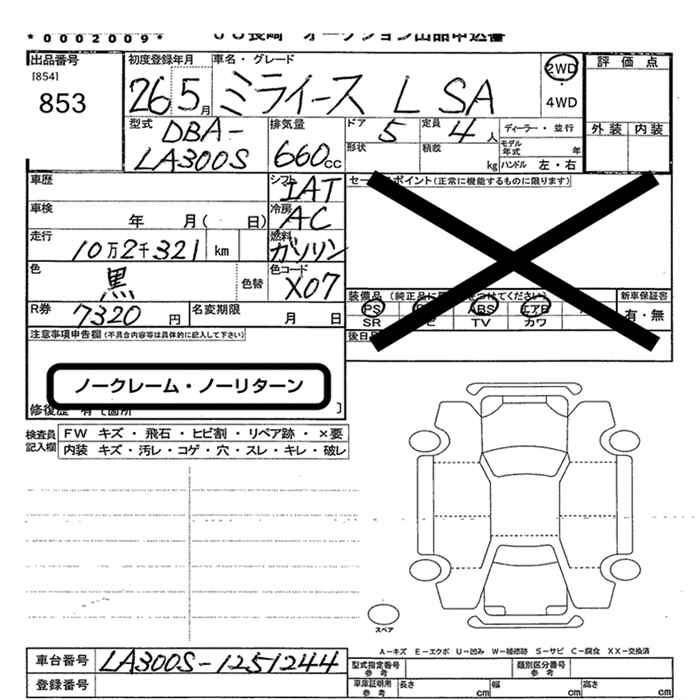 *0002009* JU長崎 オークション出品申込書
出品番号
[854]
853
初度登録年月
26 5月
車名・グレード
ミライース L SA
2WD
・
4WD
評価点
外装 内装
型式
DBA-
LA300S
排気量
660cc
ドア
5
定員
4人
ディーラー・並行
形状
積載
kg
モデル年式
年
ハンドル 左・右
車歴
シフト
IAT
車検
年 月( 日)
冷房
AC
走行
10万2千321 km
燃料
ガソリン
色
黒
色替
色コード
X07
R券
7320円
名変期限
月 日
セールスポイント(正常に機能するものに限ります)
新車保証書
有・無
PS
ABS
エアB
SR
TV
カワ
注意事項申告欄(不具合内容等は具体的に記入して下さい)
ノークレーム・ノーリターン
検査員
記入欄
FW キズ・飛石・ヒビ割・リペア跡・×要
内装 キズ・汚レ・コゲ・穴・スレ・キレ・破レ
スペア
A-キズ E-エクボ U-凹み W-補修跡 S-サビ C-腐食 XX-交換済
車台番号
LA300S-1251244
登録番号
型式指定番号
参考
類別区分番号
参考
車庫証明用
参考
長さ
cm
幅
cm
高さ
cm